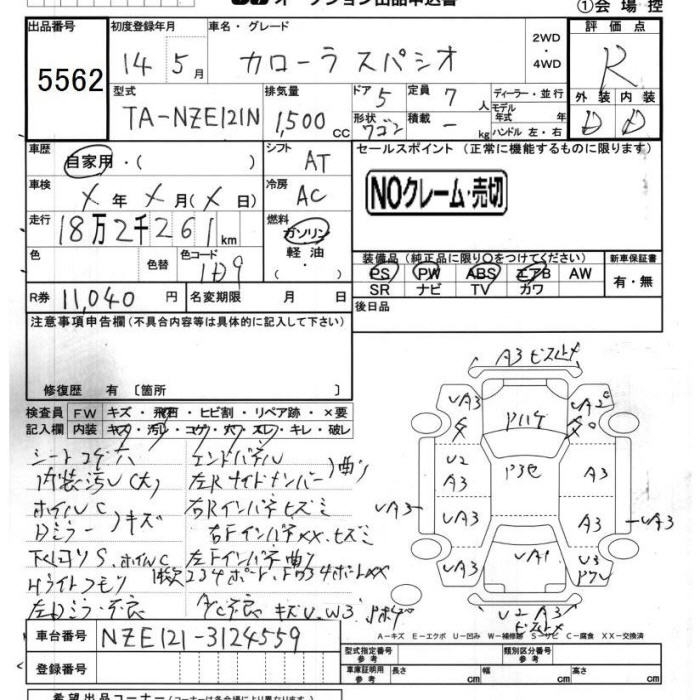 オークション出品申込書
①会場控
出品番号
5562
初度登録年月
14年5月
車名・グレード
カローラ スパシオ
2WD
・
4WD
評価点
R
外装 内装
D D
型式
TA-NZE121N
排気量
1,500cc
ドア 5
定員 7人
形状 ワゴン
積載 ー kg
ディーラー・並行
モデル年式 年
ハンドル 左・右
車歴
自家用・( )
シフト
AT
セールスポイント (正常に機能するものに限ります)
NOクレーム・売切
車検
X年X月(X日)
冷房
AC
走行
18万2千261km
燃料
ガソリン
軽油
・( )
色
色替
色コード
1D9
装備品 (純正品に限り○をつけてください)
PS PW ABS エアB AW
SR ナビ TV カワ
新車保証書
有・無
R券 11,040円
名変期限 月 日
後日品
注意事項申告欄 (不具合内容等は具体的に記入して下さい)
修復歴 有 〔箇所 〕
検査員
記入欄
FW キズ・飛石・ヒビ割・リペア跡・×要
内装 キズ・汚レ・コゲ・穴・スレ・キレ・破レ
シートコゲ穴
内装汚レ(大)
ホイルC
Dミラー)キズ
エンドパネル
左Rサイドメンバー)曲り
右Rインパネヒズミ
右FインパネXX、ヒズミ
下廻りS、ホイルC
左Fインパネ曲り
Hライトクモリ
左Dミラー不良
A/C不良
キズU、W3
A3 ビス止メ
UA3
UA2
U2
A3
A3
UA3
A3
UA3
UA3
UA3
UA1
U3
U2 A3
ビス止メ
A－キズ E－エクボ U－凹み W－補修跡 S－サビ C－腐食 XX－交換済
車台番号
NZE121-3124559
登録番号
型式指定番号
参考
類別区分番号
参考
車庫証明用
参考
長さ cm
幅 cm
高さ cm
希望出品コーナー